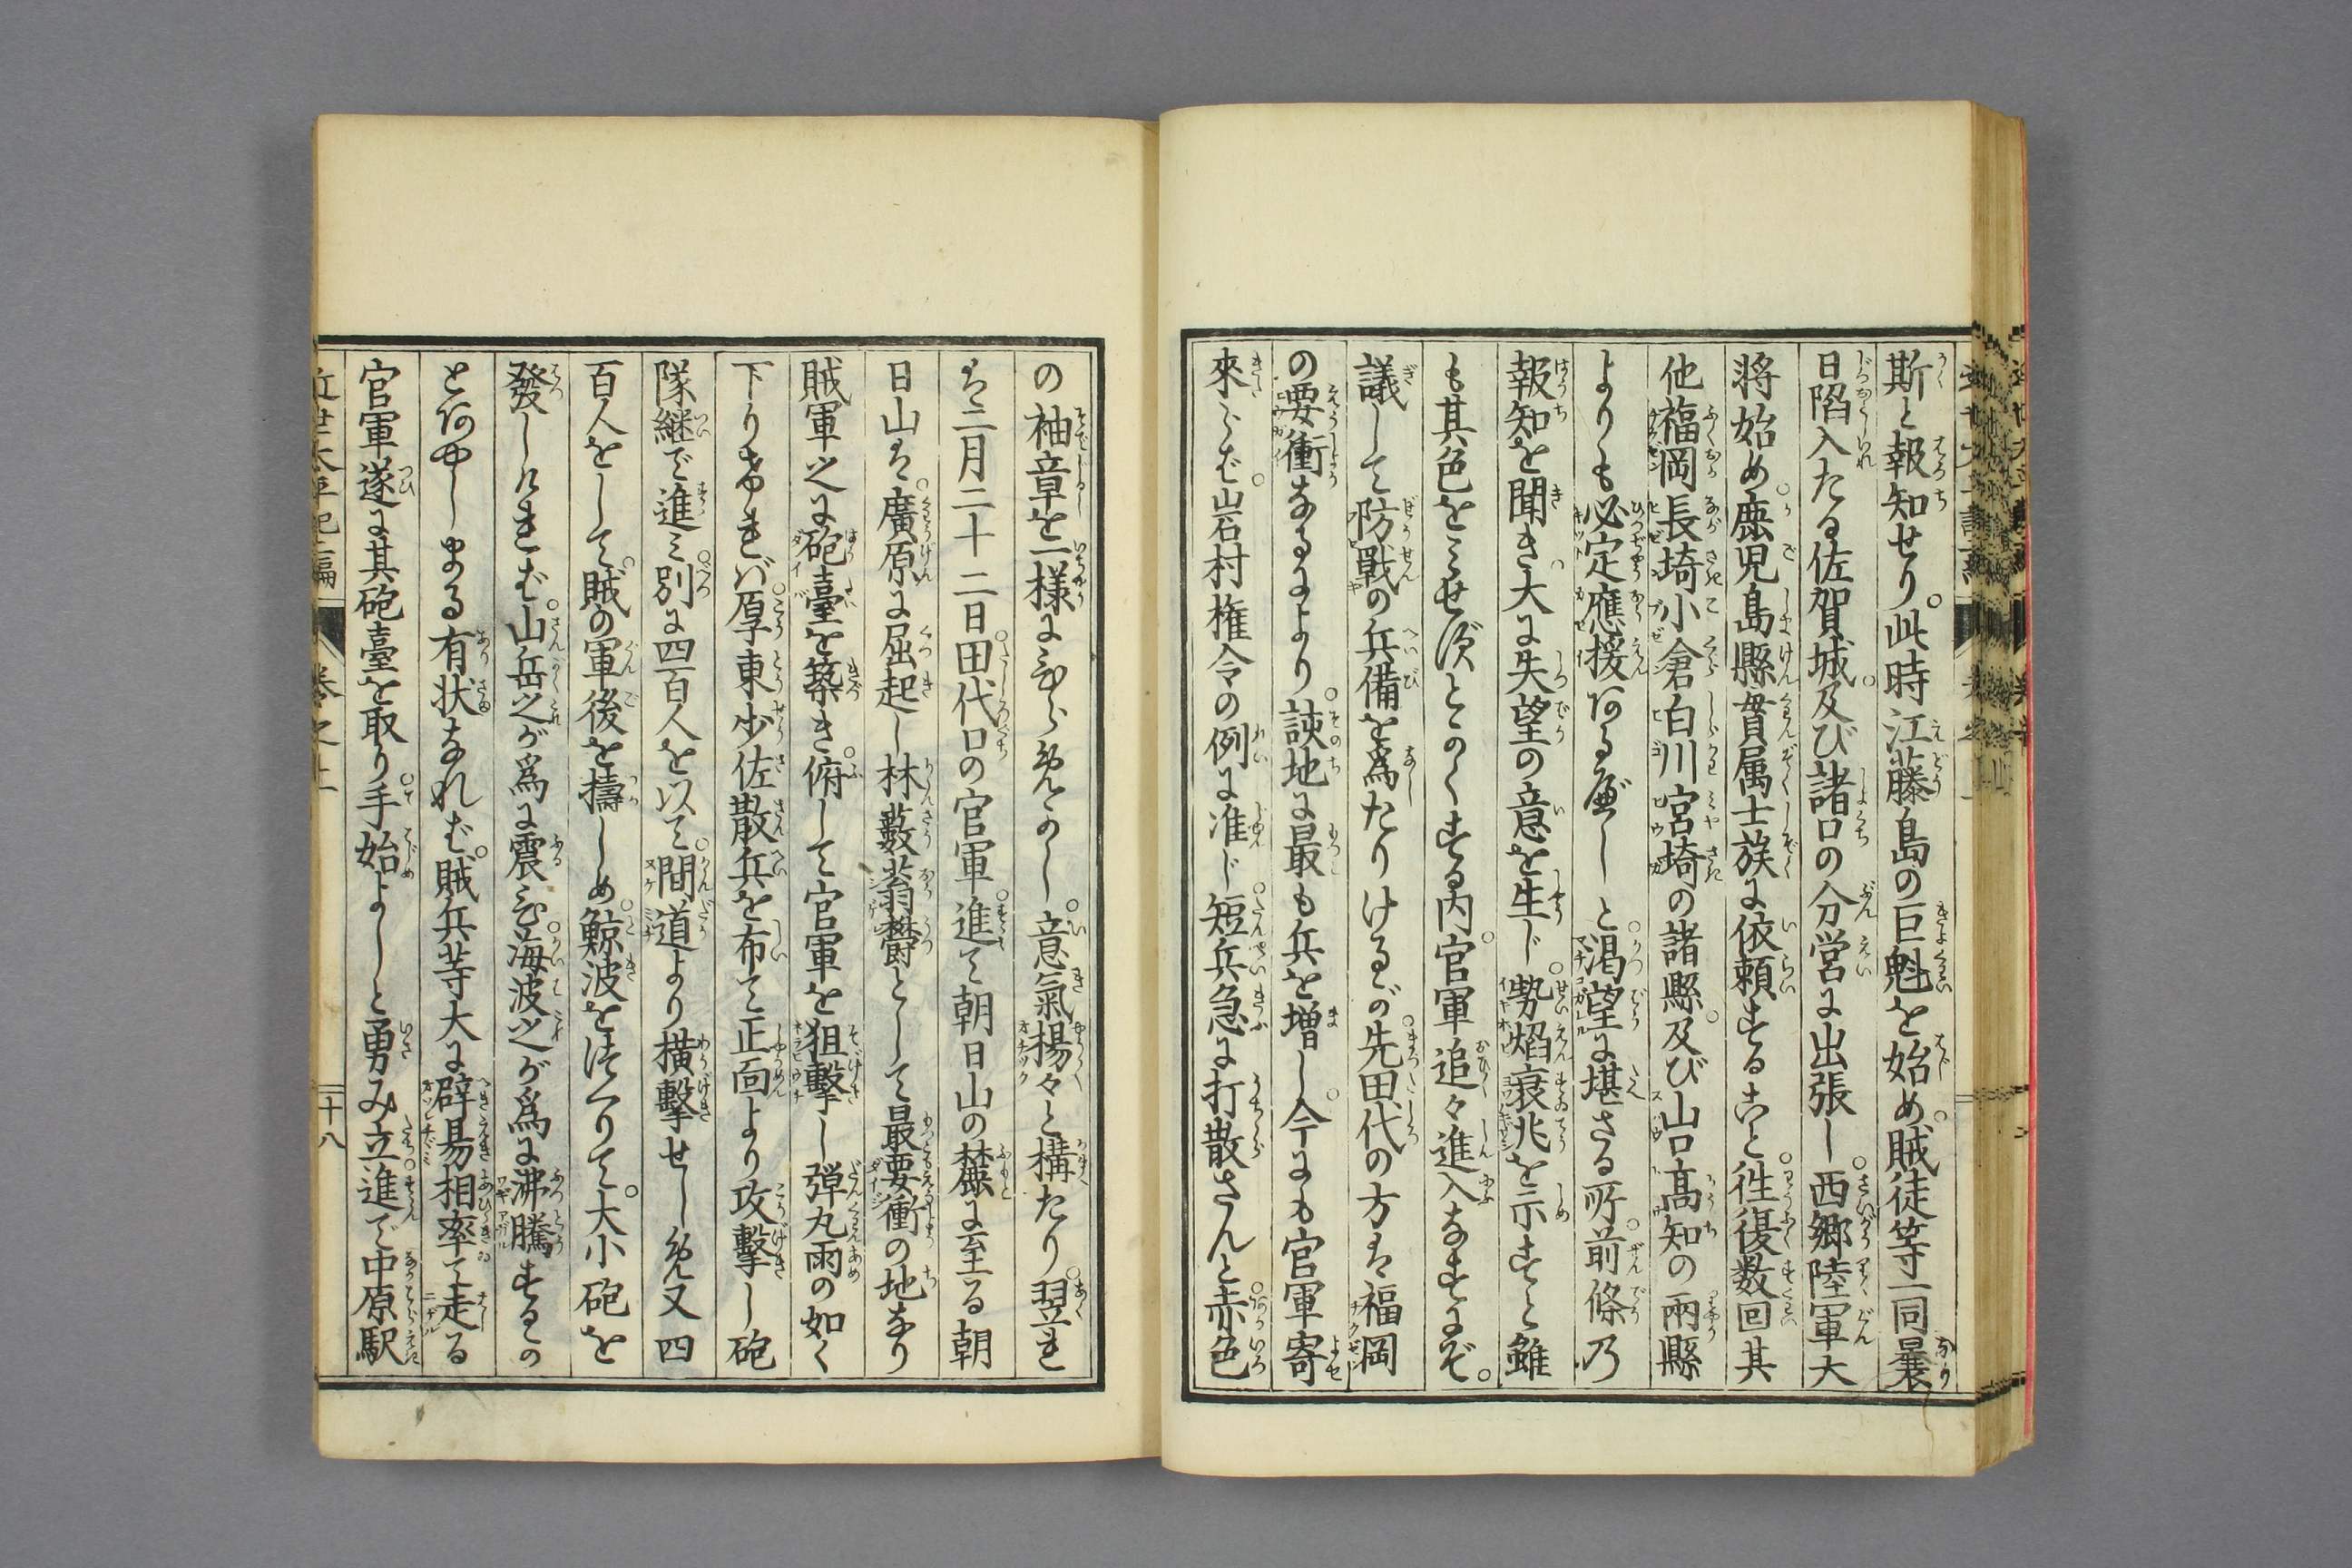 斯と報知せり。此時江藤島の巨魁を始め。賊徒等一同曩
日陥入たる佐賀城。及び諸口の分営に出張し。西郷陸軍大
将始め。鹿児島縣貫属士族に依頼することゝ。徃復数回其
他福岡長埼小倉白川宮埼の諸縣。及び山口髙知の兩縣
よりも必定應援ある可しと。渇望に堪さる所。前條乃
報知を聞き。大に失望の意を生じ。㔟焰衰兆を示すと雖
も其色をみせずとのくする内。官軍追々進入なすにぞ。
議して防戰の兵備を為たりけるが。先田代の方は福岡
の要衝なるにより。該地に最も兵を増し。今にも官軍寄
來らば。岩村権令の例に准じ。短兵急に打散さんと。赤色
の袖章を一様に
意氣揚々と構たり。翌れ
は二月二十二日。田代口の官軍。進て朝日山の麓に至る朝
日山は。廣原に屈起し林藪蓊欝として最要衝の地なり
賊軍之に砲臺を築き。俯して官軍を狙擊し弾丸雨の如く
下りければ。厚東少佐散兵を布て正面より攻擊し砲
隊継で進み。別に四百人を以て。間道より横擊せしめ又四
百人をして。賊の軍後を擣しめ。鯨波をつくりて。大小砲を
發しければ。山岳之が為に震ひ。海波之が為に沸騰するの
とあやしまる有状なれば。賊兵等大に辟易相率て走る
官軍遂に其砲臺を取り。手始よしと勇み立。進で中原駅
近世太平記二編
巻之上
十八